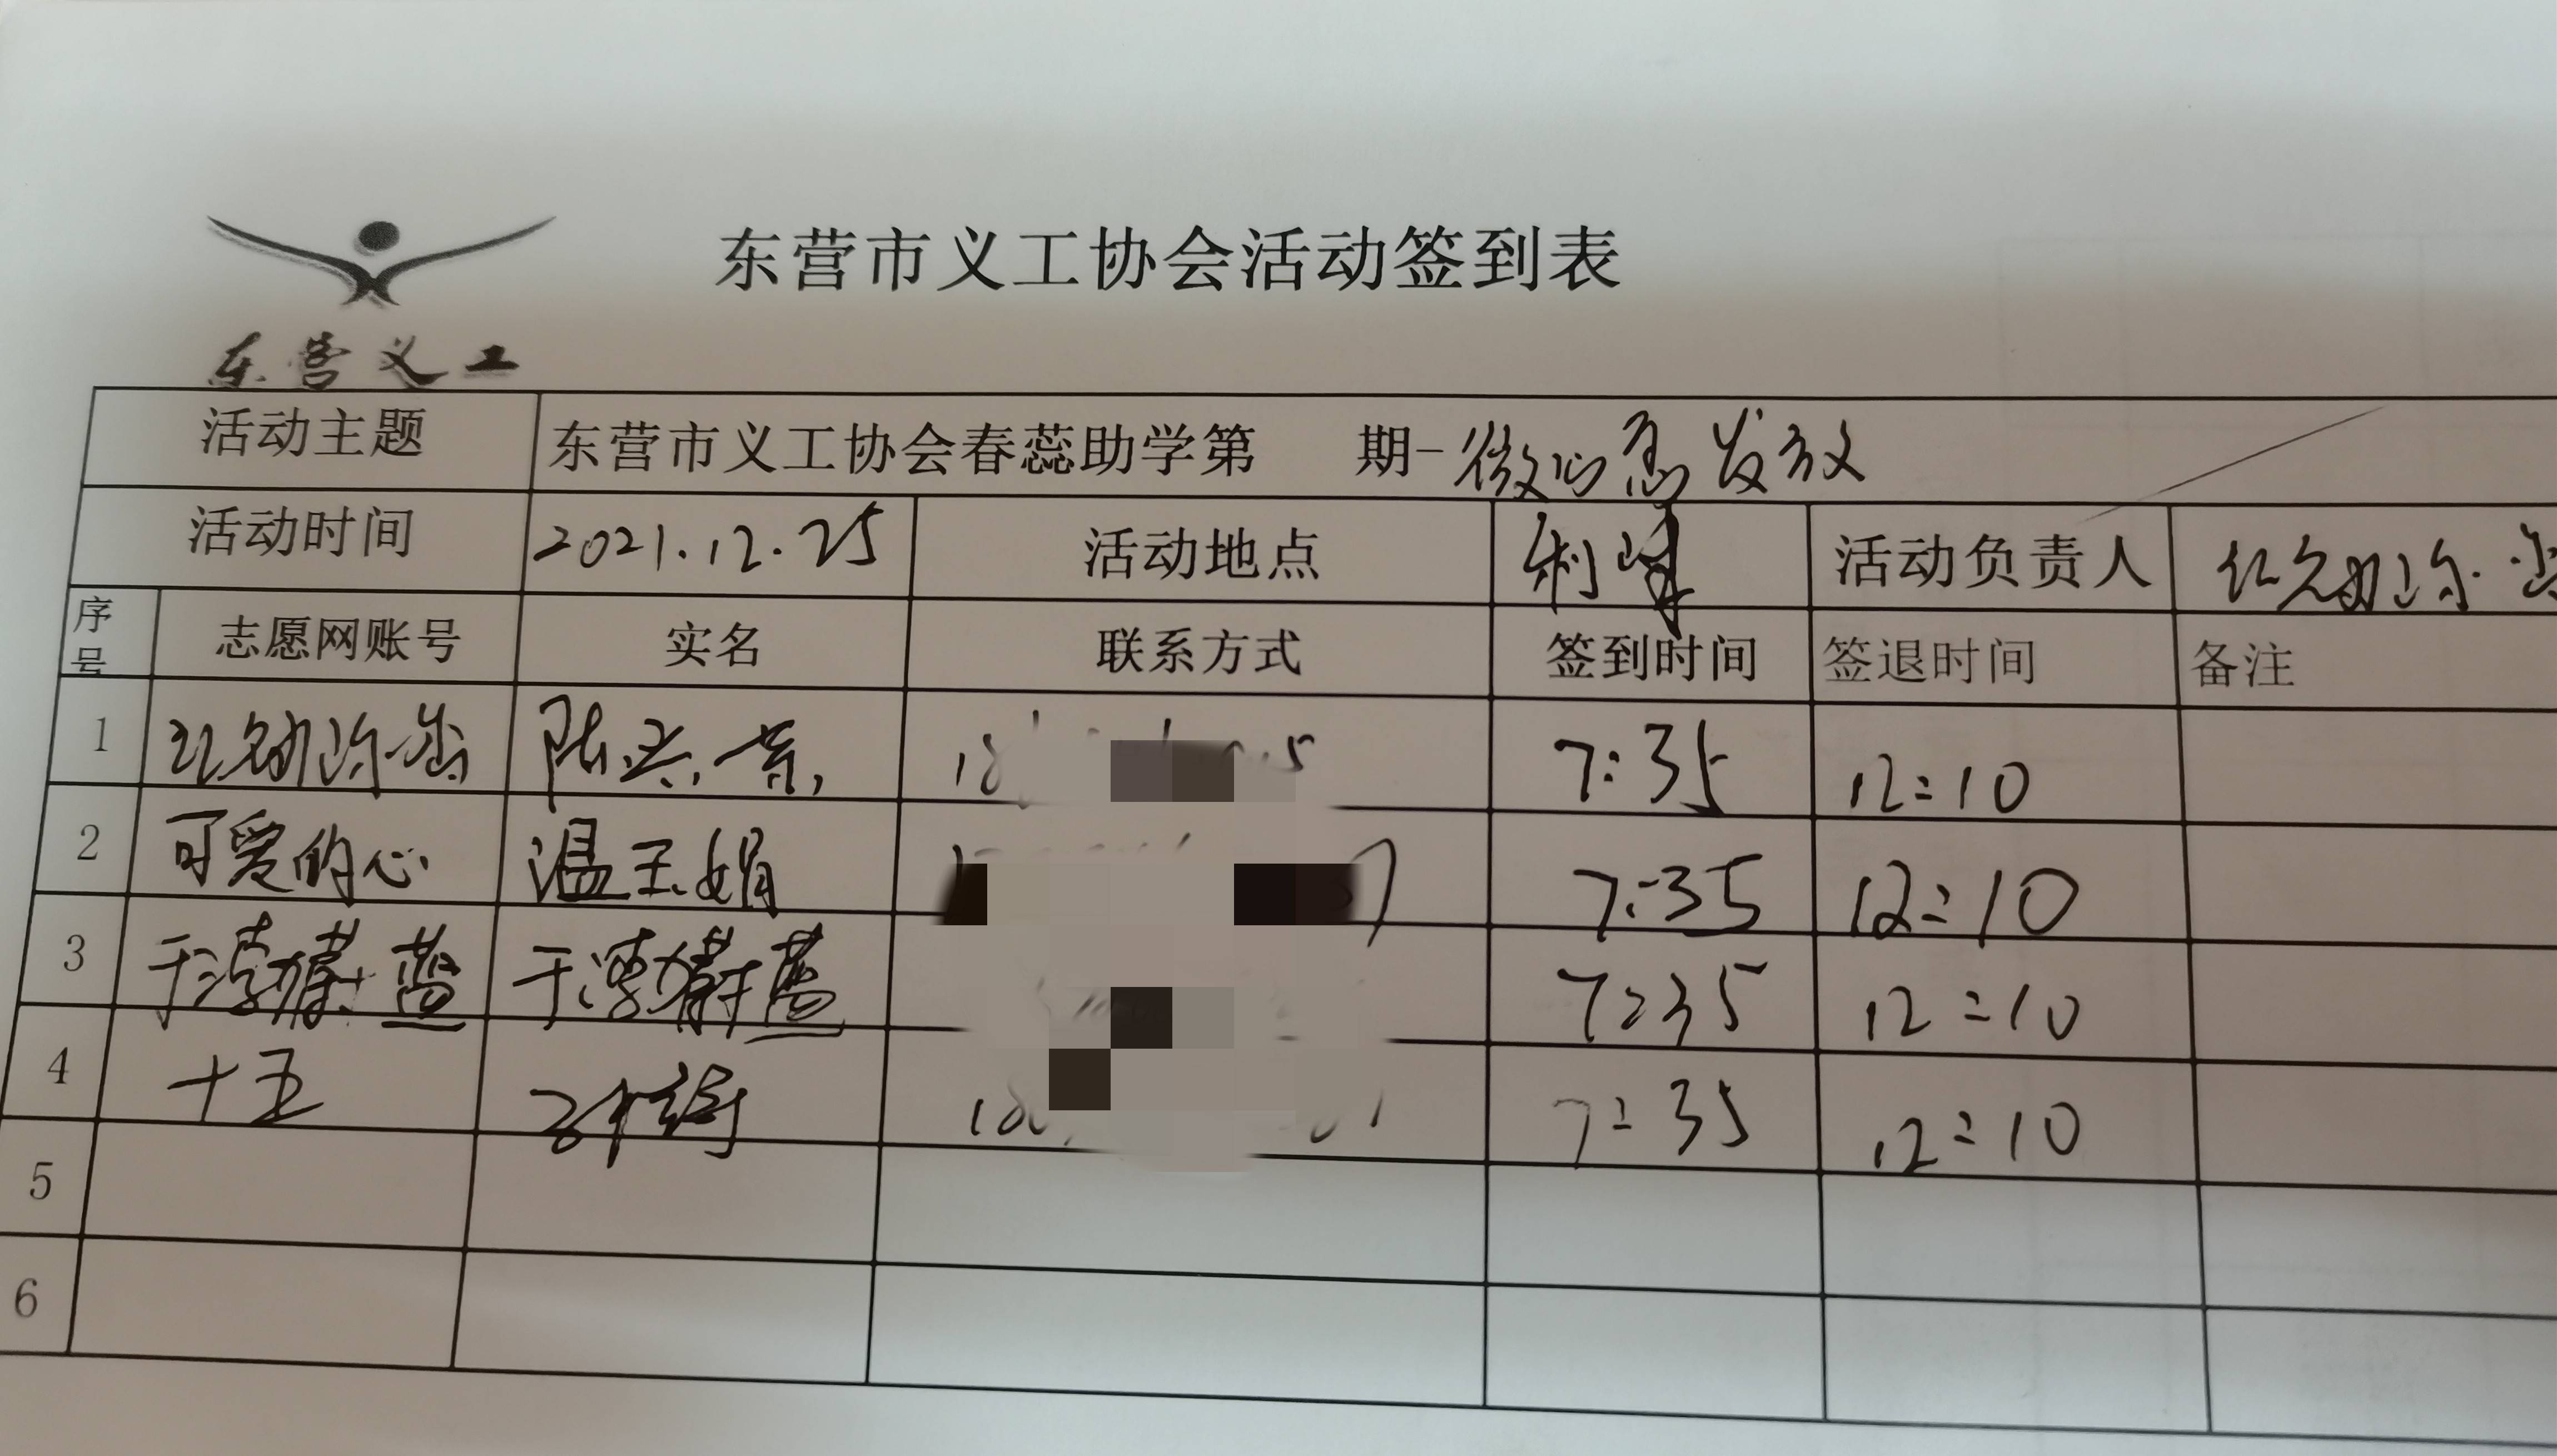 东营市义工协会活动签到表
东营义工
活动主题 东营市义工协会春蕊助学第 期-微心愿发放
活动时间 2021.12.25 活动地点 利津 活动负责人
序号 志愿网账号 实名 联系方式 签到时间 签退时间 备注
1 7:35 12:10
2 可爱的心 温玉娟 7:35 12:10
3 于渤蔚蓝 于渤蔚蓝 7:35 12:10
4 十五 7:35 12:10
5
6